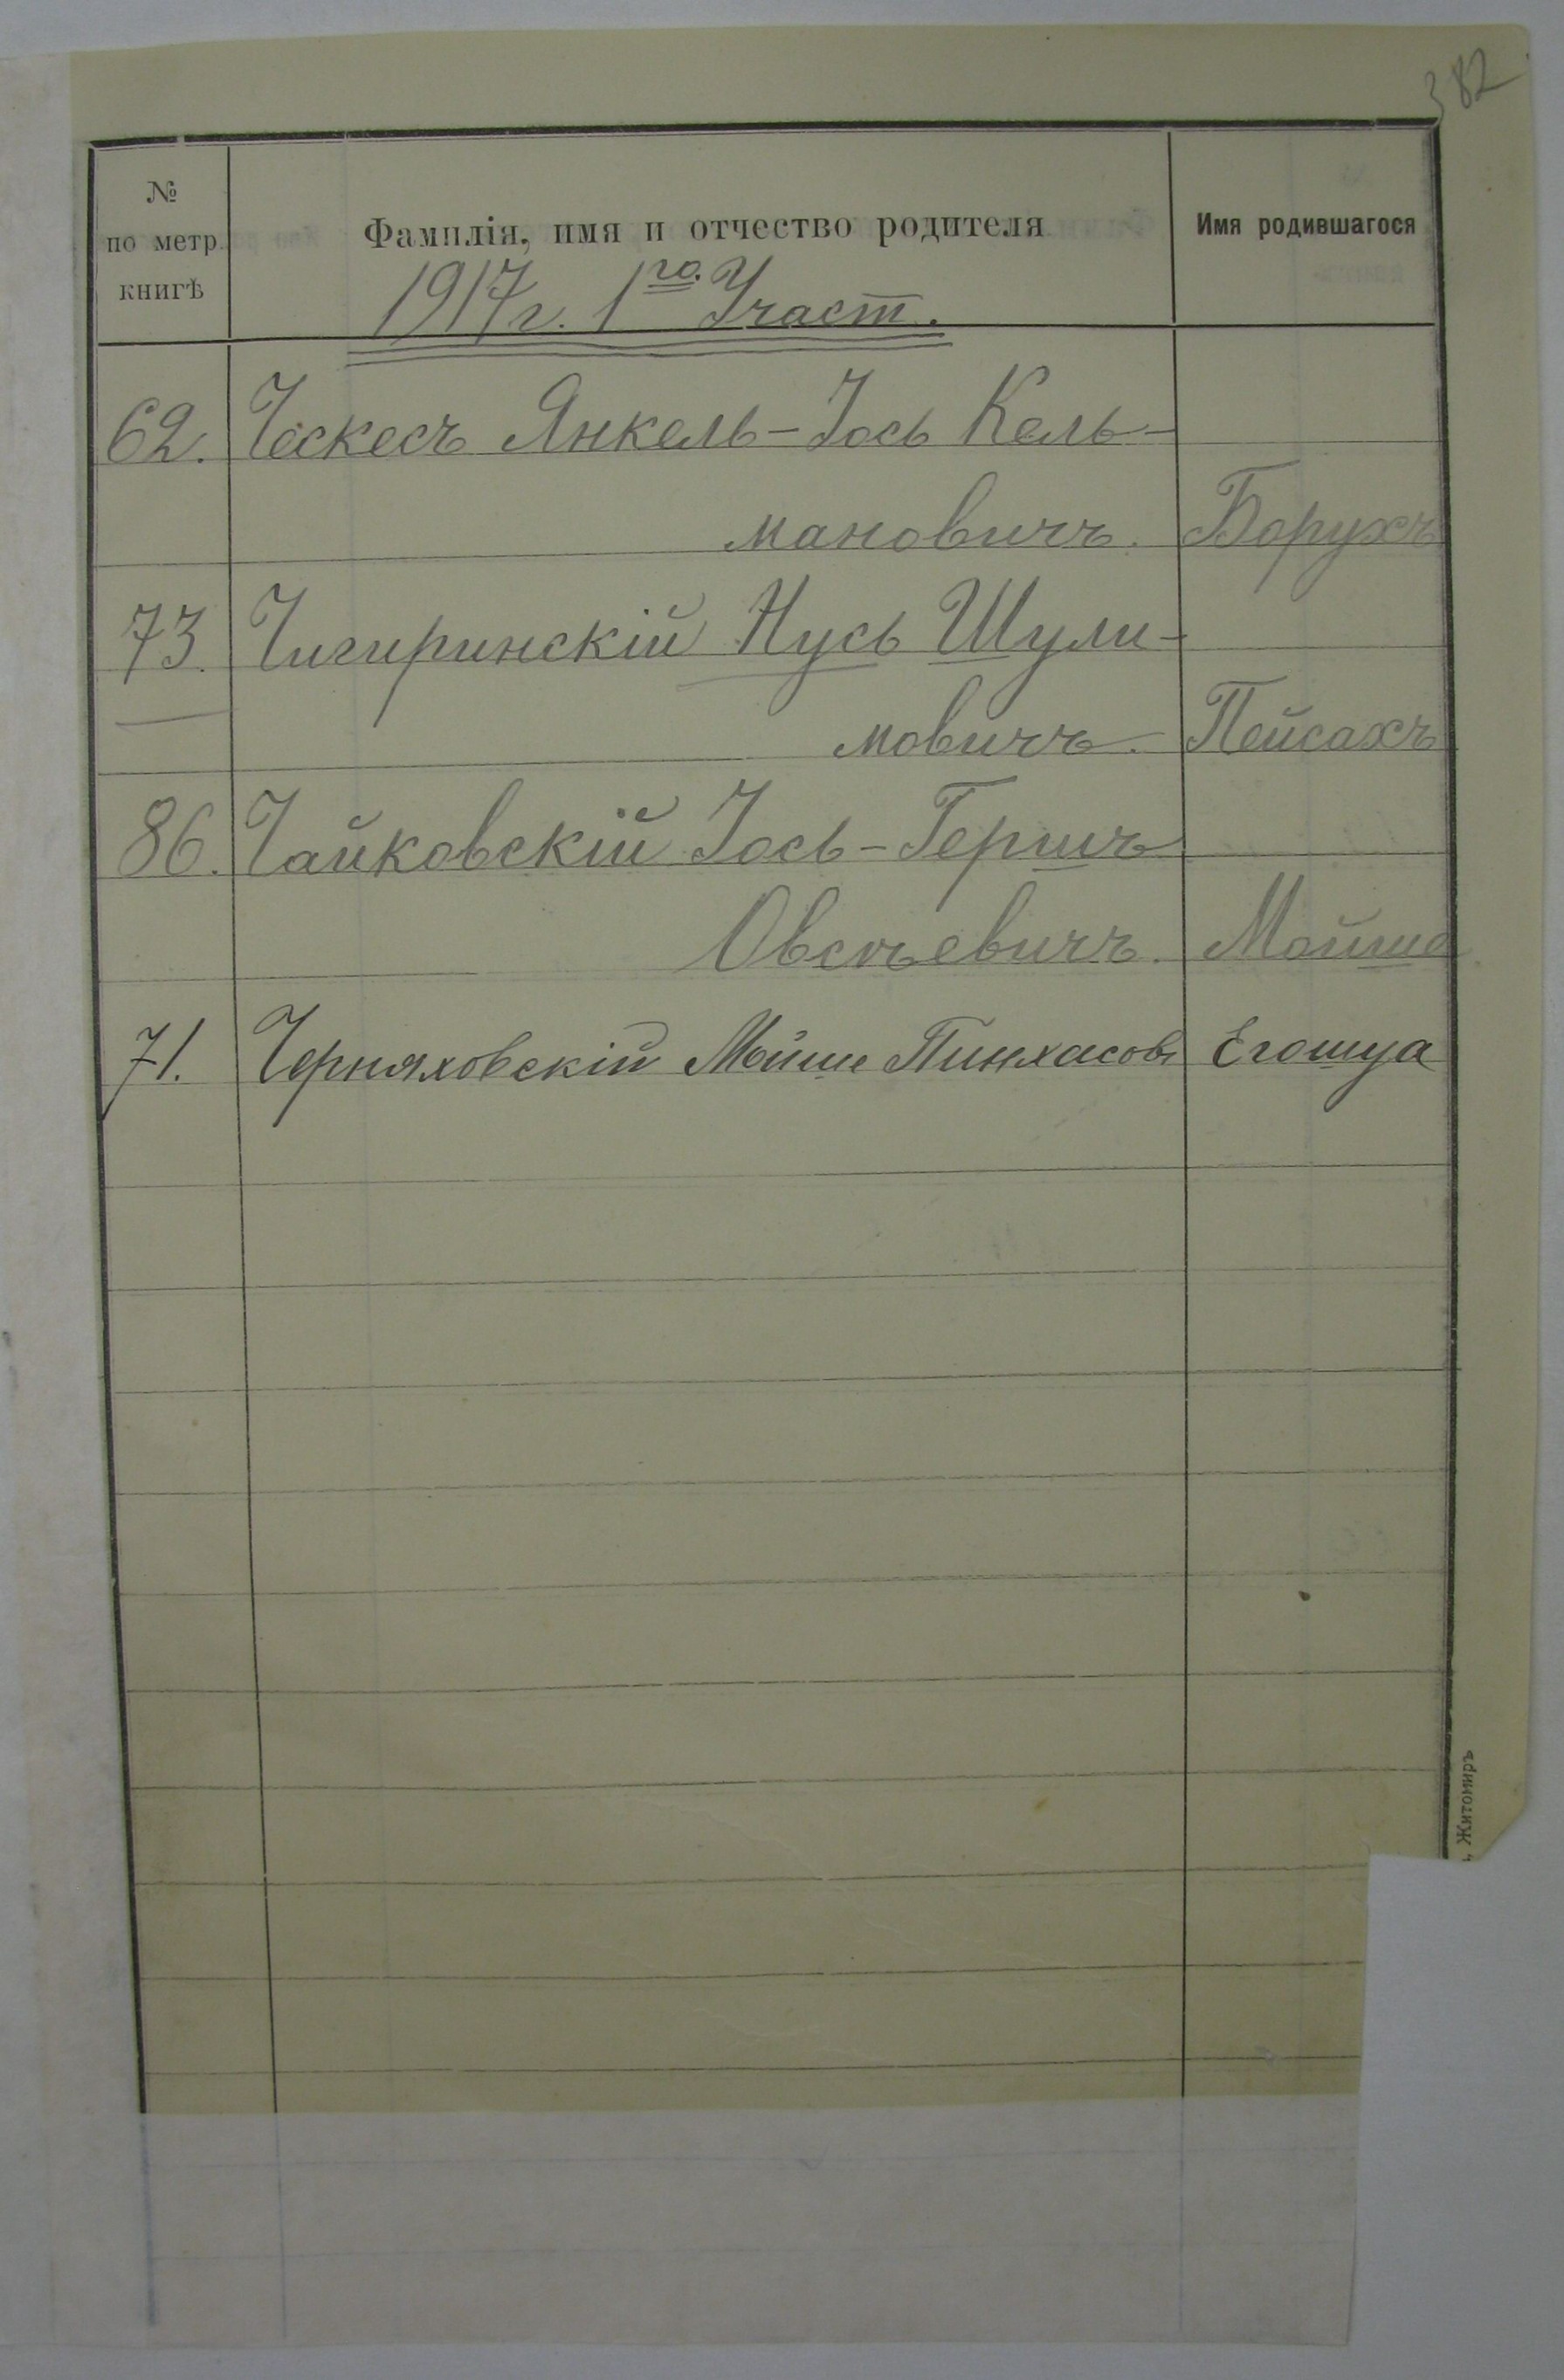 382
№
по метр.
книгѣ
Фамилія, имя и отчество родителя
Имя родившагося
1917 г. 1го. Участ.
62. Ческесъ Янкель-Іось Кель-
мановичъ. Борухъ
73. Чигиринскій Нусь Шули-
мовичъ. Пейсахъ
86. Чайковскій Іось-Гершъ
Овсѣевичъ. Мойше
71. Черняховскій Мойше Пинхасовъ Егошуа
Житомиръ